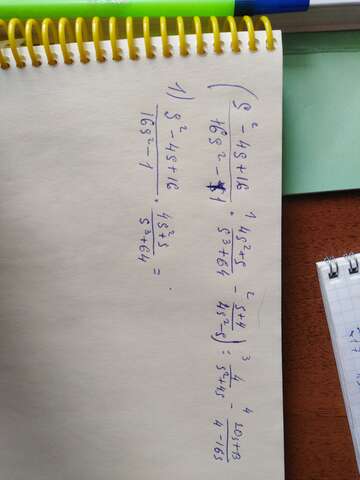 ( (s² - 4s + 16)/(16s² - 1) ¹· (4s² + s)/(s³ + 64) ²- (s + 4)/(4s² - s) ) ³: 4/(s² + 4s) ⁴- (20s + 13)/(4 - 16s)
1) (s² - 4s + 16)/(16s² - 1) · (4s² + s)/(s³ + 64) =